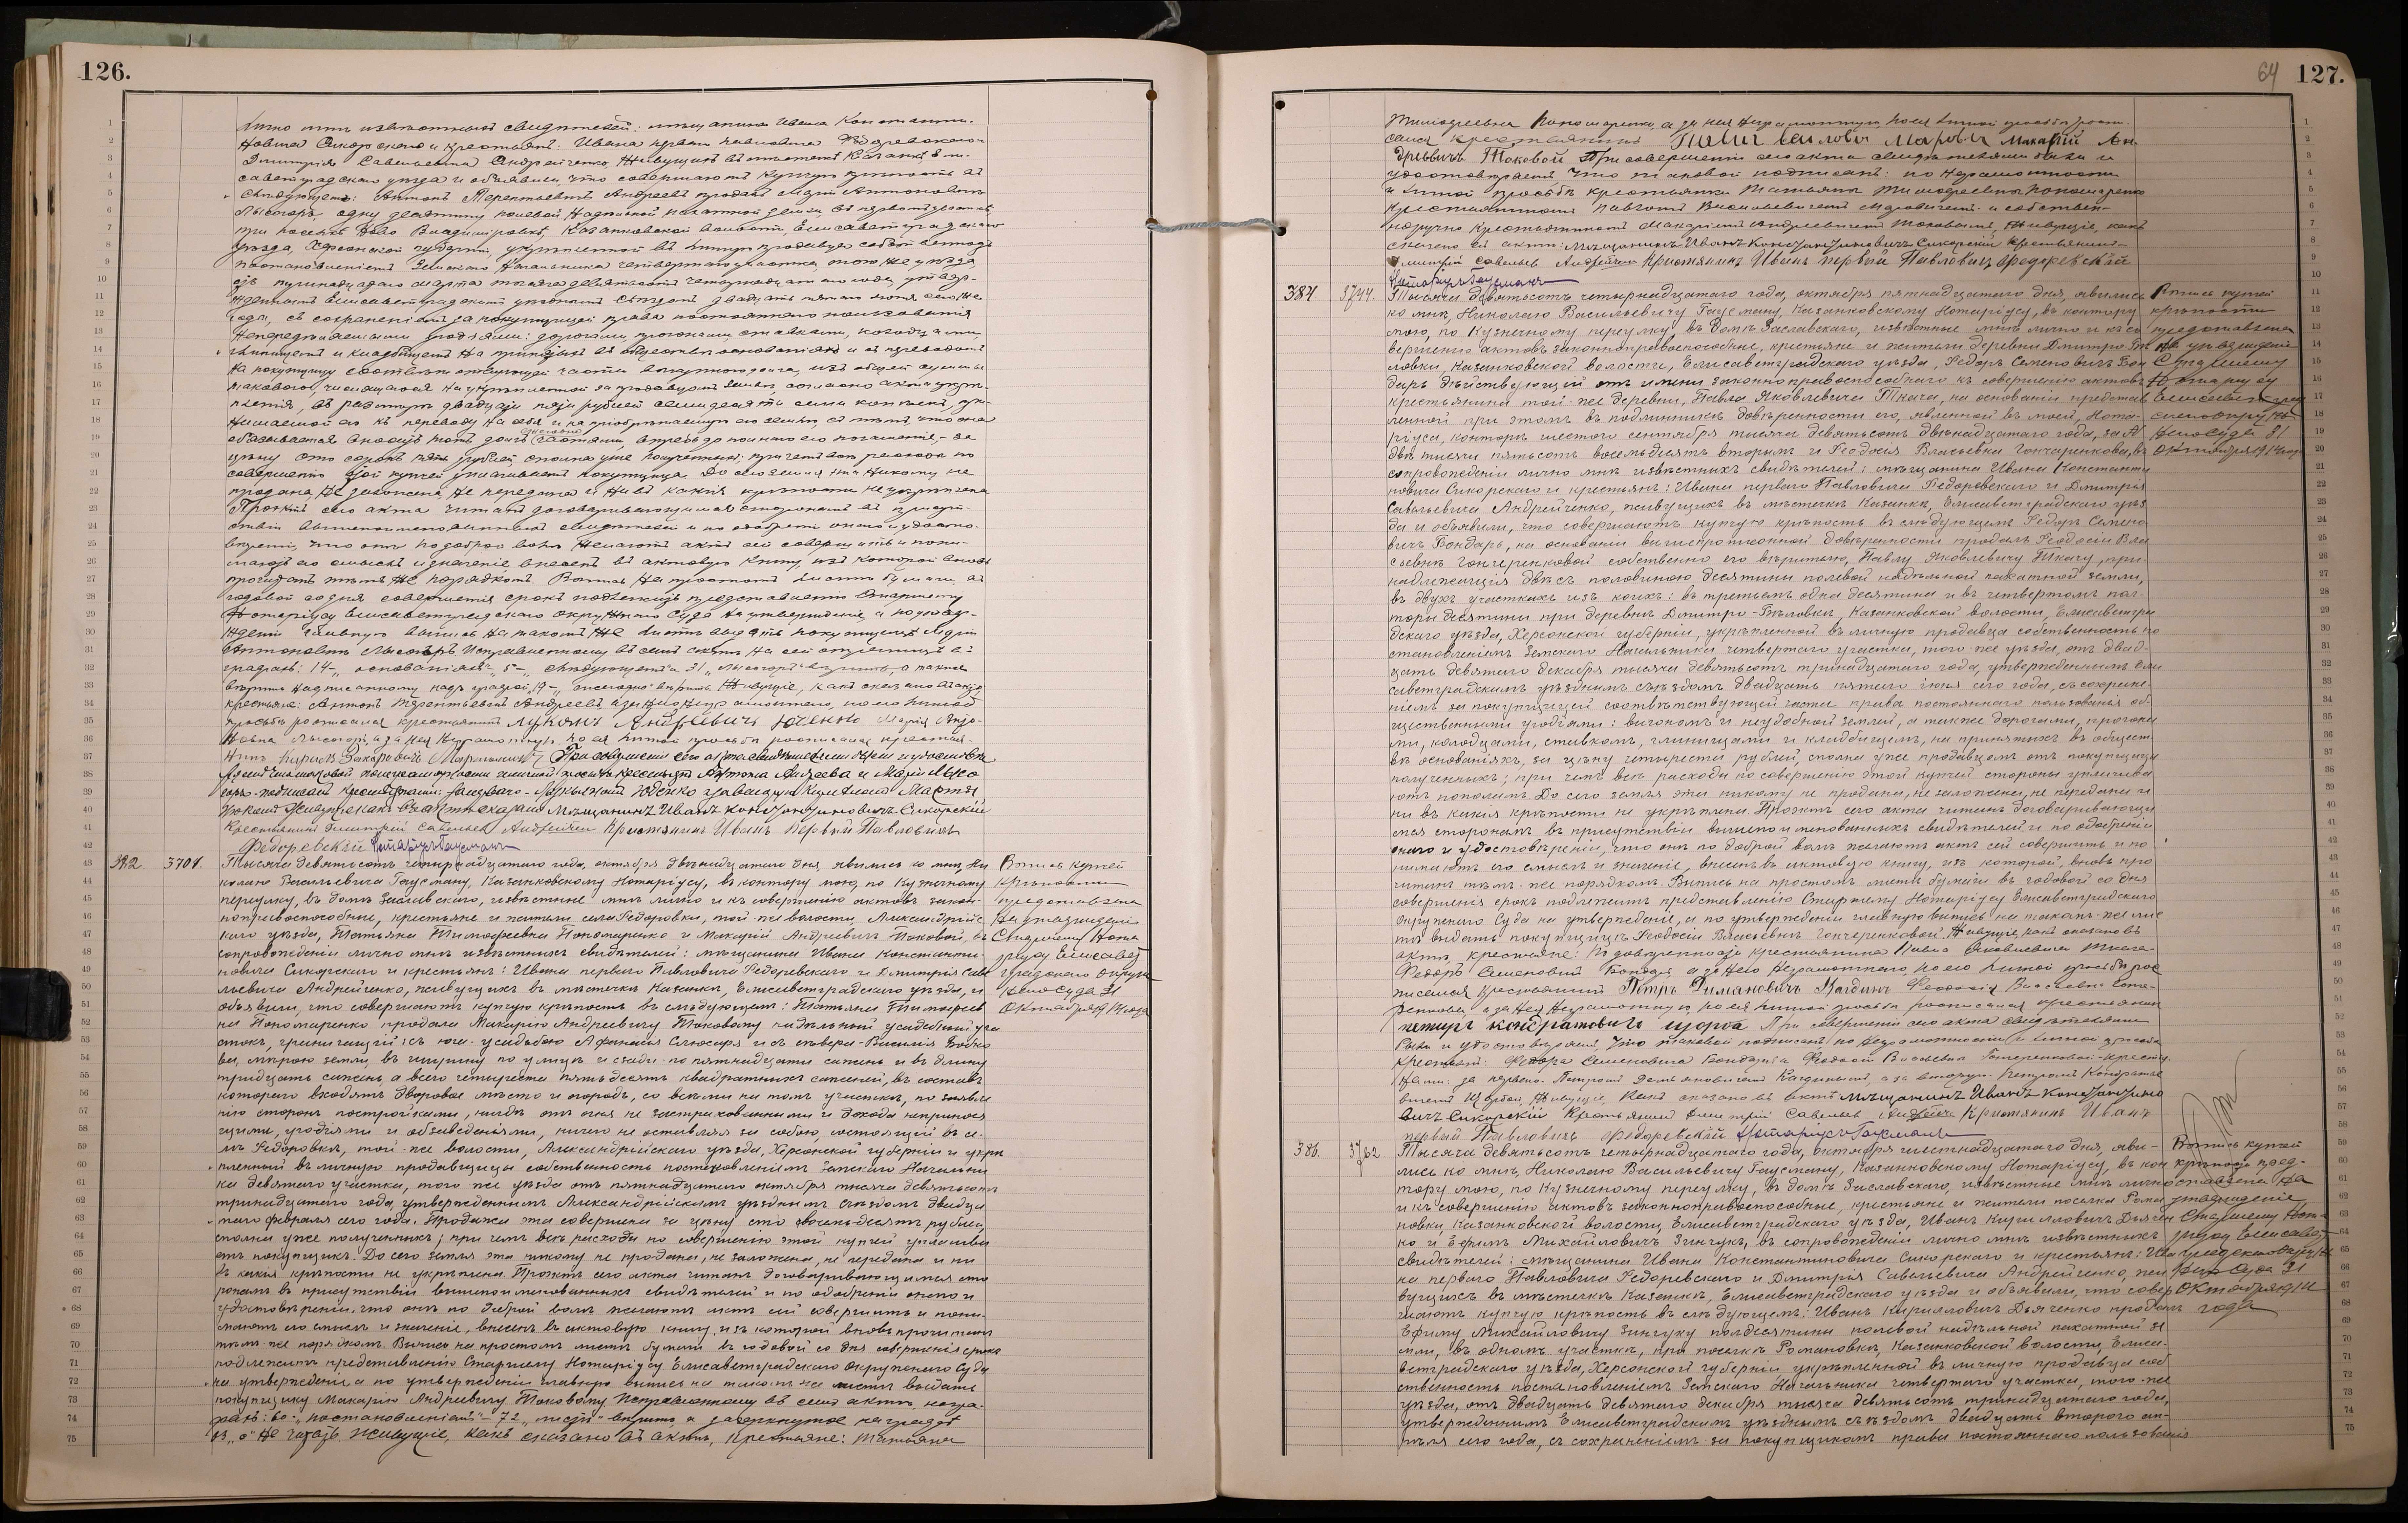 126.
лично мнѣ извѣстныхъ свидѣтелей: мѣщанина Ивана Константи-
новича Сикорскаго и крестьянъ: Ивана перваго Павловича Федоревскаго и
Дмитрія Савельевича Андрейченко, живущихъ въ мѣстечкѣ Казанкѣ, Ели-
саветградскаго уѣзда и объявили, что совершаютъ купчую крѣпость въ
слѣдующемъ: Антонъ Терентьевичъ Андреевъ продалъ Маріи Антоновнѣ
Лысогоръ одну десятину полевой надѣльной пахатной земли, въ
при поселкѣ Ново Владиміровкѣ, Казанковской волости, Елисаветградскаго
уѣзда, Херсонской губерніи, укрѣпленной въ личную продавца собственность
постановленіемъ Земскаго Начальника четвертаго участка, того же уѣзда,
отъ пятнадцатаго марта тысяча девятьсотъ четырнадцатаго года, утвер-
жденнымъ Елисаветградскимъ уѣзднымъ съѣздомъ двадцать пятаго іюня сего же
года, съ сохраненіемъ за покупщицей права постояннаго пользованія
нераздѣльными угодьями: дорогами, прогонами, ставками, колодцами,
глинищемъ и кладбищемъ на принятыхъ въ обществѣ основаніяхъ и съ переводомъ
на покупщицу соотвѣтствующей части выкупного долга, изъ общей суммы
таковаго, числящагося на укрѣпленной за продавцомъ землѣ, согласно акта укрѣп-
ленія, въ размѣрѣ двадцати пяти рублей семидесяти семи копѣекъ, при-
нимаемой ею къ переводу на себя и на пріобрѣтаемую ею землю, съ тѣмъ, что она
обязывается вносить этотъ долгъ частями, впредь до полнаго его погашенія, - за
цѣну сто сорокъ пять рублей, сполна уже полученныхъ; при чемъ всѣ расходы по
совершенію этой купчей уплачиваетъ покупщица. До сего земля эта никому не
продана, не заложена, не передана и ни въ какія крѣпости не укрѣплена.
Проектъ сего акта читанъ договаривающимся сторонамъ въ присут-
ствіи вышепоименованныхъ свидѣтелей и по одобреніи онаго и удосто-
вѣреніи, что онѣ по доброй волѣ желаютъ актъ сей совершить и пони-
маютъ его смыслъ и значеніе, внесенъ въ актовую книгу, изъ которой вновь
прочитанъ тѣмъ же порядкомъ. Выпись на простомъ листѣ бумаги, въ
годовой со дня совершенія срокъ подлежитъ представленію Старшему
Нотаріусу Елисаветградскаго Окружнаго Суда на утвержденіе и по утвер-
жденіи главную выпись на такомъ же листѣ выдать покупщицѣ Маріи
Антоновнѣ Лысогоръ. Исправленному въ семъ актѣ на сей страницѣ въ
крестьяне: Антонъ Терентьевичъ Андреевъ а за него неграмотнаго, по его личной
просьбѣ росписался крестьянинъ Лукіянъ Андреевичъ Юденко Марія Анто-
новна Лысогоръ, а за нея неграмотную, по ея личной просьбѣ росписался крестья-
нинъ Кирилъ Захаровичъ
Мѣщанинъ Иванъ Константиновичъ Сикорскій
Крестьянинъ Дмитрій Савельевъ Андрейченко Крестьянинъ Иванъ первый Павловичъ
Федоревскій Нотаріусъ Гаусманъ
382. 3701. Тысяча девятьсотъ четырнадцатаго года, октября двѣнадцатаго дня, явились ко мнѣ, Ни-
колаю Васильевичу Гаусману, Казанковскому Нотаріусу, въ контору мою, по Кузнечному
переулку, въ домѣ Заславскаго, извѣстные мнѣ лично и къ совершенію актовъ закон-
ноправоспособные, крестьяне и жители села Федоровки, той-же волости, Александрійс-
каго уѣзда, Татьяна Тимофеевна Пономаренко и Макарій Андреевичъ Токовой, въ
сопровожденіи лично мнѣ извѣстныхъ свидѣтелей: мѣщанина Ивана Константи-
новича Сикорскаго и крестьянъ: Ивана перваго Павловича Федоревскаго и Дмитрія Саве-
льевича Андрейченко, живущихъ въ мѣстечкѣ Казанкѣ, Елисаветградскаго уѣзда, и
объявили, что совершаютъ купчую крѣпость въ слѣдующемъ: Татьяна Тимофеев-
на Пономаренко продала Макарію Андреевичу Токовому надѣльный усадебный уча-
стокъ, граничащій: съ юга - усадьбою Афанасія Слюсаря и съ сѣвера - Василія Бойко-
ва, мѣрою земли, въ ширину по улицѣ и сзади - по пятнадцати саженъ и въ длину
тридцать саженъ, а всего четыреста пятьдесятъ квадратныхъ саженей, въ составъ
котораго входятъ дворовое мѣсто и огородъ, со всѣми на томъ участкѣ, по заявле-
нію сторонъ постройками, нигдѣ отъ огня не застрахованными и дохода неприносЯ-
щими, угодіями и обзаведеніями, ничего не оставляя за собою, состоящій въ се-
лѣ Федоровкѣ, той-же волости, Александрійскаго уѣзда, Херсонской губерніи и укрѣ-
пленный въ личную продавщицы собственность постановленіемъ Земскаго Начальни-
ка девятаго участка, того-же уѣзда отъ пятнадцатаго октября тысяча девятьсотъ
тринадцатаго года, утвержденнымъ Александрійскимъ уѣзднымъ съѣздомъ двадца-
таго февраля сего года. Продажа эта совершена за цѣну сто восемьдесятъ рублей,
сполна уже полученныхъ; при чемъ всѣ расходы по совершенію этой купчей уплачива-
етъ покупщикъ. До сего земля эта никому не продана, не заложена, не передана и ни
въ какія крѣпости не укрѣплена. Проектъ сего акта читанъ договаривающимся сто-
ронамъ въ присутствіи вышепоименованныхъ свидѣтелей и по одобреніи онаго и
удостовѣреніи, что онѣ по доброй волѣ желаютъ актъ сей совершить и пони-
маютъ его смыслъ и значеніе, внесенъ въ актовую книгу, изъ которой вновь прочитанъ
тѣмъ-же порядкомъ. Выпись на простомъ листѣ бумаги въ годовой со дня совершенія срокъ
подлежитъ представленію Старшему Нотаріусу Елисаветградскаго Окружнаго Суда
на утвержденіе и по утвержденіи главную выпись на такомъ-же листѣ выдать
покупщику Макарію Андреевичу Токовому. Исправленному въ семъ актѣ, на гра-
фахъ: 60 - „постановленіемъ" - 72 „листѣ" - вѣрить, а зачеркнутое на графѣ
„о" не читать. Живущіе, какъ сказано въ актѣ, крестьяне: Татьяна
Выпись купчей
крѣпости
представлена
на утвержденіе
Старшему Нота-
ріусу Елисавет-
градскаго Окруж-
наго Суда 31
Октября 1914 года
64 127.
Тимофеевна Пономаренко, а за нея неграмотную, по ея личной просьбѣ роспи-
сался крестьянинъ Павелъ Васильевъ Маровъ Макарій Ан-
дреевичъ Токовой При совершеніи сего акта свидѣтелями были и
удостовѣряемъ что таковой подписанъ: по неграмотности
и личной просьбѣ крестьянки Татьяны Тимофеевны Пономаренко
крестьяниномъ Павломъ Васильевичемъ Маровымъ и собствен-
норучно крестьяниномъ Макаріемъ Андреевичемъ Токовымъ, живущіе, какъ
сказано въ актѣ: Мѣщанинъ Иванъ Константиновичъ Сикорскій Крестьянинъ
Дмитрій Савельевъ Андрейченко Крестьянинъ Иванъ первый Павловичъ Федоревскій
Нотаріусъ Гаусманъ
384 3744. Тысяча девятьсотъ четырнадцатаго года, октября пятнадцатаго дня, явились
ко мнѣ, Николаю Васильевичу Гаусману, Казанковскому Нотаріусу, въ контору
мою, по Кузнечному переулку, въ домѣ Заславскаго, извѣстные мнѣ лично и къ со-
вершенію актовъ законноправоспособные, крестьяне и жители деревни Дмитро-Бѣ-
ловки, Казанковской волости, Елисаветградскаго уѣзда, Федоръ Семеновичъ Бон-
дарь, дѣйствующій отъ имени законно правоспособнаго къ совершенію актовъ
крестьянина той-же деревни, Павла Яковлевича Ткача, на основаніи представ-
ленной при этомъ въ подлинникѣ довѣренности его, явленной въ моей, Нота-
ріуса, конторѣ шестого сентября тысяча девятьсотъ двѣнадцатаго года, за №
двѣ тысячи пятьсотъ восемьдесятъ вторымъ и Феодосія Власьевна Гончаренкова, въ
сопровожденіи лично мнѣ извѣстныхъ свидѣтелей: мѣщанина Ивана Константи-
новича Сикорскаго и крестьянъ: Ивана перваго Павловича Федоревскаго и Дмитрія
Савельевича Андрейченко, живущихъ въ мѣстечкѣ Казанкѣ, Елисаветградскаго уѣз-
да и объявили, что совершаютъ купчую крѣпость въ слѣдующемъ: Федоръ Семено-
вичъ Бондарь, на основаніи вышепрописанной довѣренности продалъ Феодосіи Вла-
сьевнѣ Гончаренковой собственно его вѣрителю, Павлу Яковлевичу Ткачу, при-
надлежащія двѣ съ половиною десятины полевой надѣльной пахатной земли,
въ двухъ участкахъ изъ коихъ: въ третьемъ одна десятина и въ четвертомъ пол-
торы десятины при деревнѣ Дмитро-Бѣловкѣ, Казанковской волости, Елисаветгра-
дскаго уѣзда, Херсонской губерніи, укрѣпленной въ личную продавца собственность по-
становленіемъ Земскаго Начальника четвертаго участка, того-же уѣзда, отъ двад-
цать девятаго декабря тысяча девятьсотъ тринадцатаго года, утвержденнымъ Ели-
саветградскимъ уѣзднымъ съѣздомъ двадцать пятаго іюня сего года, съ сохране-
ніемъ за покупщицей соотвѣтствующей части права постояннаго пользованія об-
щественными угодіями: выгономъ и неудобной землей, а также дорогами, прогона-
ми, колодцами, ставкомъ, глинищами и кладбищемъ, на принятыхъ въ общест-
вѣ основаніяхъ, за цѣну четыреста рублей, сполна уже продавцомъ отъ покупщицы
полученныхъ; при чемъ всѣ расходы по совершенію этой купчей стороны уплачива-
ютъ пополамъ. До сего земля эта никому не продана, не заложена, не передана и
ни въ какія крѣпости не укрѣплена. Проектъ сего акта читанъ договаривающи-
мся сторонамъ въ присутствіи вышепоименованныхъ свидѣтелей и по одобреніи
онаго и удостовѣреніи, что онѣ по доброй волѣ желаютъ актъ сей совершить и по-
нимаютъ его смыслъ и значеніе, внесенъ въ актовую книгу, изъ которой, вновь про-
читанъ тѣмъ-же порядкомъ. Выпись на простомъ листѣ бумаги въ годовой со дня
совершенія срокъ подлежитъ представленію Старшему Нотаріусу Елисаветградскаго
Окружнаго Суда на утвержденіе, а по утвержденіи главную выпись на такомъ-же лис-
тѣ выдать покупщицѣ Феодосіи Власьевнѣ Гончаренковой. Живущіе, какъ сказано въ
актѣ, крестьяне: По довѣренности крестьянина Павла Яковлевича Ткача -
Федоръ Семеновичъ Бондарь а за него неграмотнаго по его личной просьбѣ рос-
писался крестьянинъ Петръ Демьяновичъ Феодосія Власьевна Гонча-
ренкова, а за нея неграмотную, по ея личной просьбѣ росписался крестьянинъ
петръ кондратовичъ щорба При совершеніи сего акта свидѣтелями
были и удостовѣряемъ, что таковой подписанъ по неграмотности и личной просьбѣ
крестьянъ: Федора Семеновича Бондаря и Феодосіи Власьевны Гончаренковой - крестья-
нами: за перваго - Петромъ Демьяновичемъ а за вторую - Петромъ Кондратье-
вичемъ Щорбой, живущіе, какъ сказано въ актѣ Мѣщанинъ Иванъ Константино-
вичъ Сикорскій Крестьянинъ Дмитрій Савельевъ Андрейченко Крестьянинъ Иванъ
первый Павловичъ Федоревскій Нотаріусъ Гаусманъ
Выпись купчей
крѣпости
представлена
на утвержденіе
Старшему
Нотаріусу
Елисаветград-
скаго Окруж-
наго Суда 31
Октября 1914 года
386. 3762 Тысяча девятьсотъ четырнадцатаго года, октября шестнадцатаго дня, яви-
лись ко мнѣ, Николаю Васильевичу Гаусману, Казанковскому Нотаріусу, въ кон-
тору мою, по Кузнечному переулку, въ домѣ Заславскаго, извѣстные мнѣ лично
и къ совершенію актовъ законноправоспособные, крестьяне и жители поселка Рома-
новки, Казанковской волости, Елисаветградскаго уѣзда, Иванъ Кирилловичъ Дьячен-
ко и Ефимъ Михайловичъ Зинчукъ, въ сопровожденіи лично мнѣ извѣстныхъ
свидѣтелей: мѣщанина Ивана Константиновича Сикорскаго и крестьянъ: Ива-
на перваго Павловича Федоревскаго и Дмитрія Савельевича Андрейченко, жи-
вущихъ въ мѣстечкѣ Казанкѣ, Елисаветградскаго уѣзда и объявили, что совер-
шаютъ купчую крѣпость въ слѣдующемъ: Иванъ Кирилловичъ Дьяченко продалъ
Ефиму Михайловичу Зинчуку полдесятины полевой надѣльной пахатной зе-
мли, въ одномъ участкѣ, при поселкѣ Романовкѣ, Казанковской волости, Елиса-
ветградскаго уѣзда, Херсонской губерніи, укрѣпленной въ личную продавца соб-
ственность постановленіемъ Земскаго Начальника четвертаго участка, того-же
уѣзда, отъ двадцать девятаго декабря тысяча девятьсотъ тринадцатаго года,
утвержденнымъ Елисаветградскимъ уѣзднымъ съѣздомъ двадцать второго ап-
рѣля сего года, съ сохраненіемъ за покупщикомъ права постояннаго пользованія
Выпись купчей
крѣпости пред-
ставлена на
утвержденіе
Старшему Нота-
ріусу Елисавет-
градскаго Окруж-
наго Суда 31
Октября 1914
года